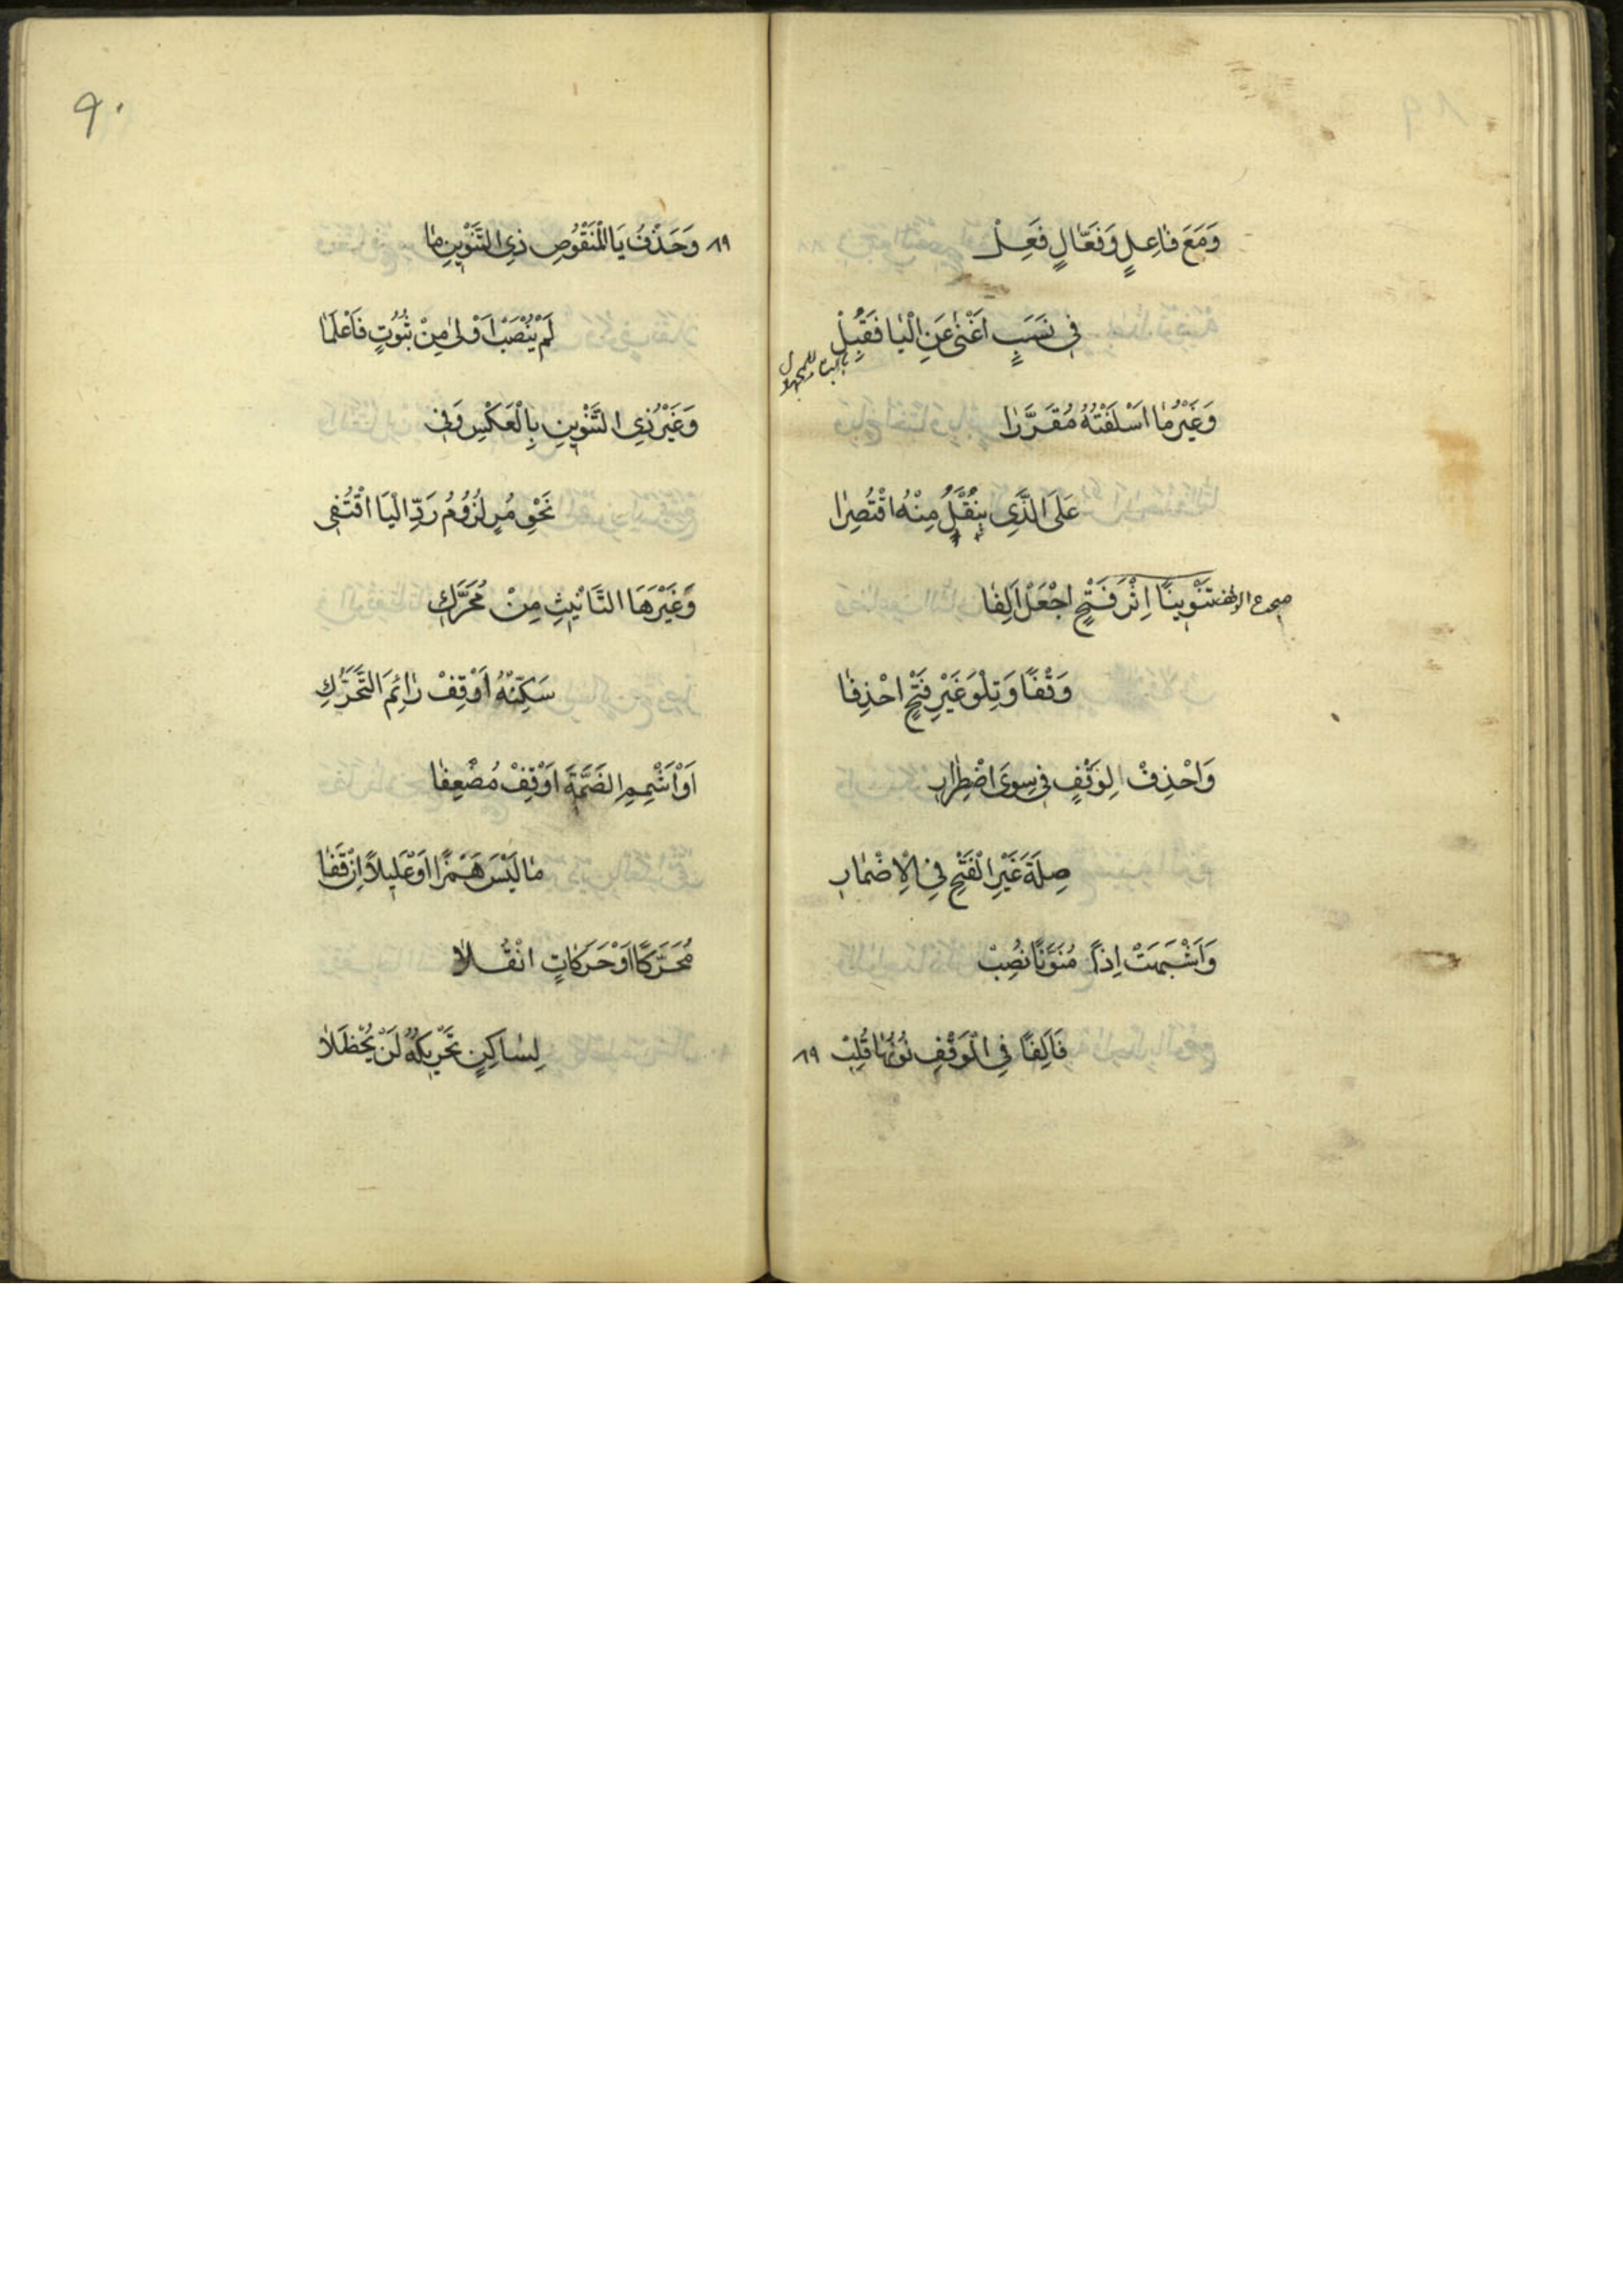 وَمَعَ فَاعِلٍ وَفَعَّالٍ فَعِلْ
فِي نَسَبٍ اَغْنىٰ عَنِ الْيَا فَقُبِلْ
بالبناء للمجهول
وَغَيْرُ مٰا اَسْلَفْتُهُ مُقَرَّرٰا
عَلَى الَّذِي يُنْقَلُ مِنْهُ اقْتُصِرٰا
تَنْوِينًا اِثْرَ فَتْحٍ اجْعَلْ اَلِفٰا
وَقْفًا وَتِلْوَ غَيْرِ فَتْحٍ احْذِفٰا
وَاحْذِفْ لِوَقْفٍ فِي سِوَى اضْطِرٰارِ
صِلَةَ غَيْرِ الْفَتْحِ فِي الْاِضْمٰارِ
وَاَشْبَهَتْ اِذًا مُنَوَّنًا نُصِبْ
فَاَلِفًا فِي الْوَقْفِ نُونُهٰا قُلِبْ ٨٩
٩٠
٨٩ وَحَذْفُ يَا الْمَنْقُوصِ ذِي التَّنْوِينِ مٰا
لَمْ يُنْصَبْ اَوْلىٰ مِنْ ثُبُوتٍ فَاعْلَمٰا
وَغَيْرُ ذِي التَّنْوِينِ بِالْعَكْسِ وَفِي
نَحْوِ مُرٍ لُزُومُ رَدِّ الْيَا اقْتُفِي
وَغَيْرَ هَا التَّانِيثِ مِنْ مُحَرَّكِ
سَكِّنْهُ اَوْ قِفْ رٰائِمَ التَّحَرُّكِ
اَوْ اَشْمِمِ الضَّمَّةَ اَوْ قِفْ مُضْعِفٰا
مٰا لَيْسَ هَمْزًا اَوْ عَلِيلاً اِنْ قَفٰا
مُحَرَّكًا اَوْ حَرَكٰاتٍ انْقُلاٰ
لِسٰاكِنٍ تَحْرِيكُهُ لَنْ يُحْظَلاٰ